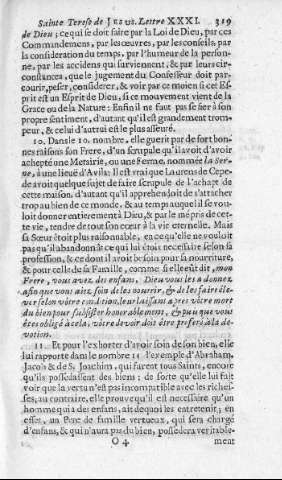 Sainte Terese de JESUS. Lettre XXXI. 319
de Dieu; ce qui se doit faire par la Loi de Dieu, par ces
Commandemens, par les œuvres, par les conseils, par
la consideration du temps, par l'humeur de la person-
ne, par les accidens qui surviennent, & par leurs cir-
constances, que le jugement du Confesseur doit par-
courir, peser, considerer, & voir par ce moien si cet Es-
prit est un Esprit de Dieu, si ce mouvement vient de la
Grace ou de la Nature: Enfin il ne faut pas se fier à son
propre sentiment, d'autant qu'il est grandement trom-
peur, & celui d'autrui est le plus asseuré.
10. Dans le 10. nombre, elle guerit par de fort bon-
nes raisons son Frere, d'un scrupule qu'il avoit d'avoir
achepté une Metairie, ou une Ferme, nommée la Ser-
ne, à une lieuë d'Avila: Il est vrai que Laurens de Cepe-
de avoit quelque sujet de faire scrupule de l'achapt de
cette maison, d'autant qu'il apprehendoit de s'attacher
trop au bien de ce monde, & au temps auquel il se vou-
loit donner entierement à Dieu, & par le mépris de cet-
te vie, tendre de tout son cœur à la vie eternelle. Mais
sa Sœur étoit plus raisonnable, en ce qu'elle ne vouloit
pas qu'il abandonnât ce qui lui étoit necessaire selon sa
profession, & ce dont il avoit besoin pour sa nourriture,
& pour celle de sa Famille, comme si elle eût dit, mon
Frere, vous avez des enfans, Dieu vous les a donnez
afin que vous aiez soin de les nourrir, & de les faire éle-
ver selon vôtre condition, leur laissant aprés vôtre mort
du bien pour subsister honorablement, & puu que vous
étes obligé à cela, vôtre devoir doit être preferé à la de-
votion.
11. Et pour l'exhorter d'avoir soin de son bien, elle
lui rapporte dans le nombre 11 l'exemple d'Abraham,
Jacob & de S. Joachim, qui furent tous Saints, encore
qu'ils possedassent des biens; de sorte qu'elle lui fait
voir que la vertu n'est pas incompatible avec les riches-
ses, au contraire, elle prouve qu'il est necessaire qu'un
homme qui a des enfans, ait dequoi les entretenir; en
effet, un Pere de famille vertueux, qui sera chargé
d'enfans, & qui n'aura pas du bien, possedera veritable-
O 4 ment